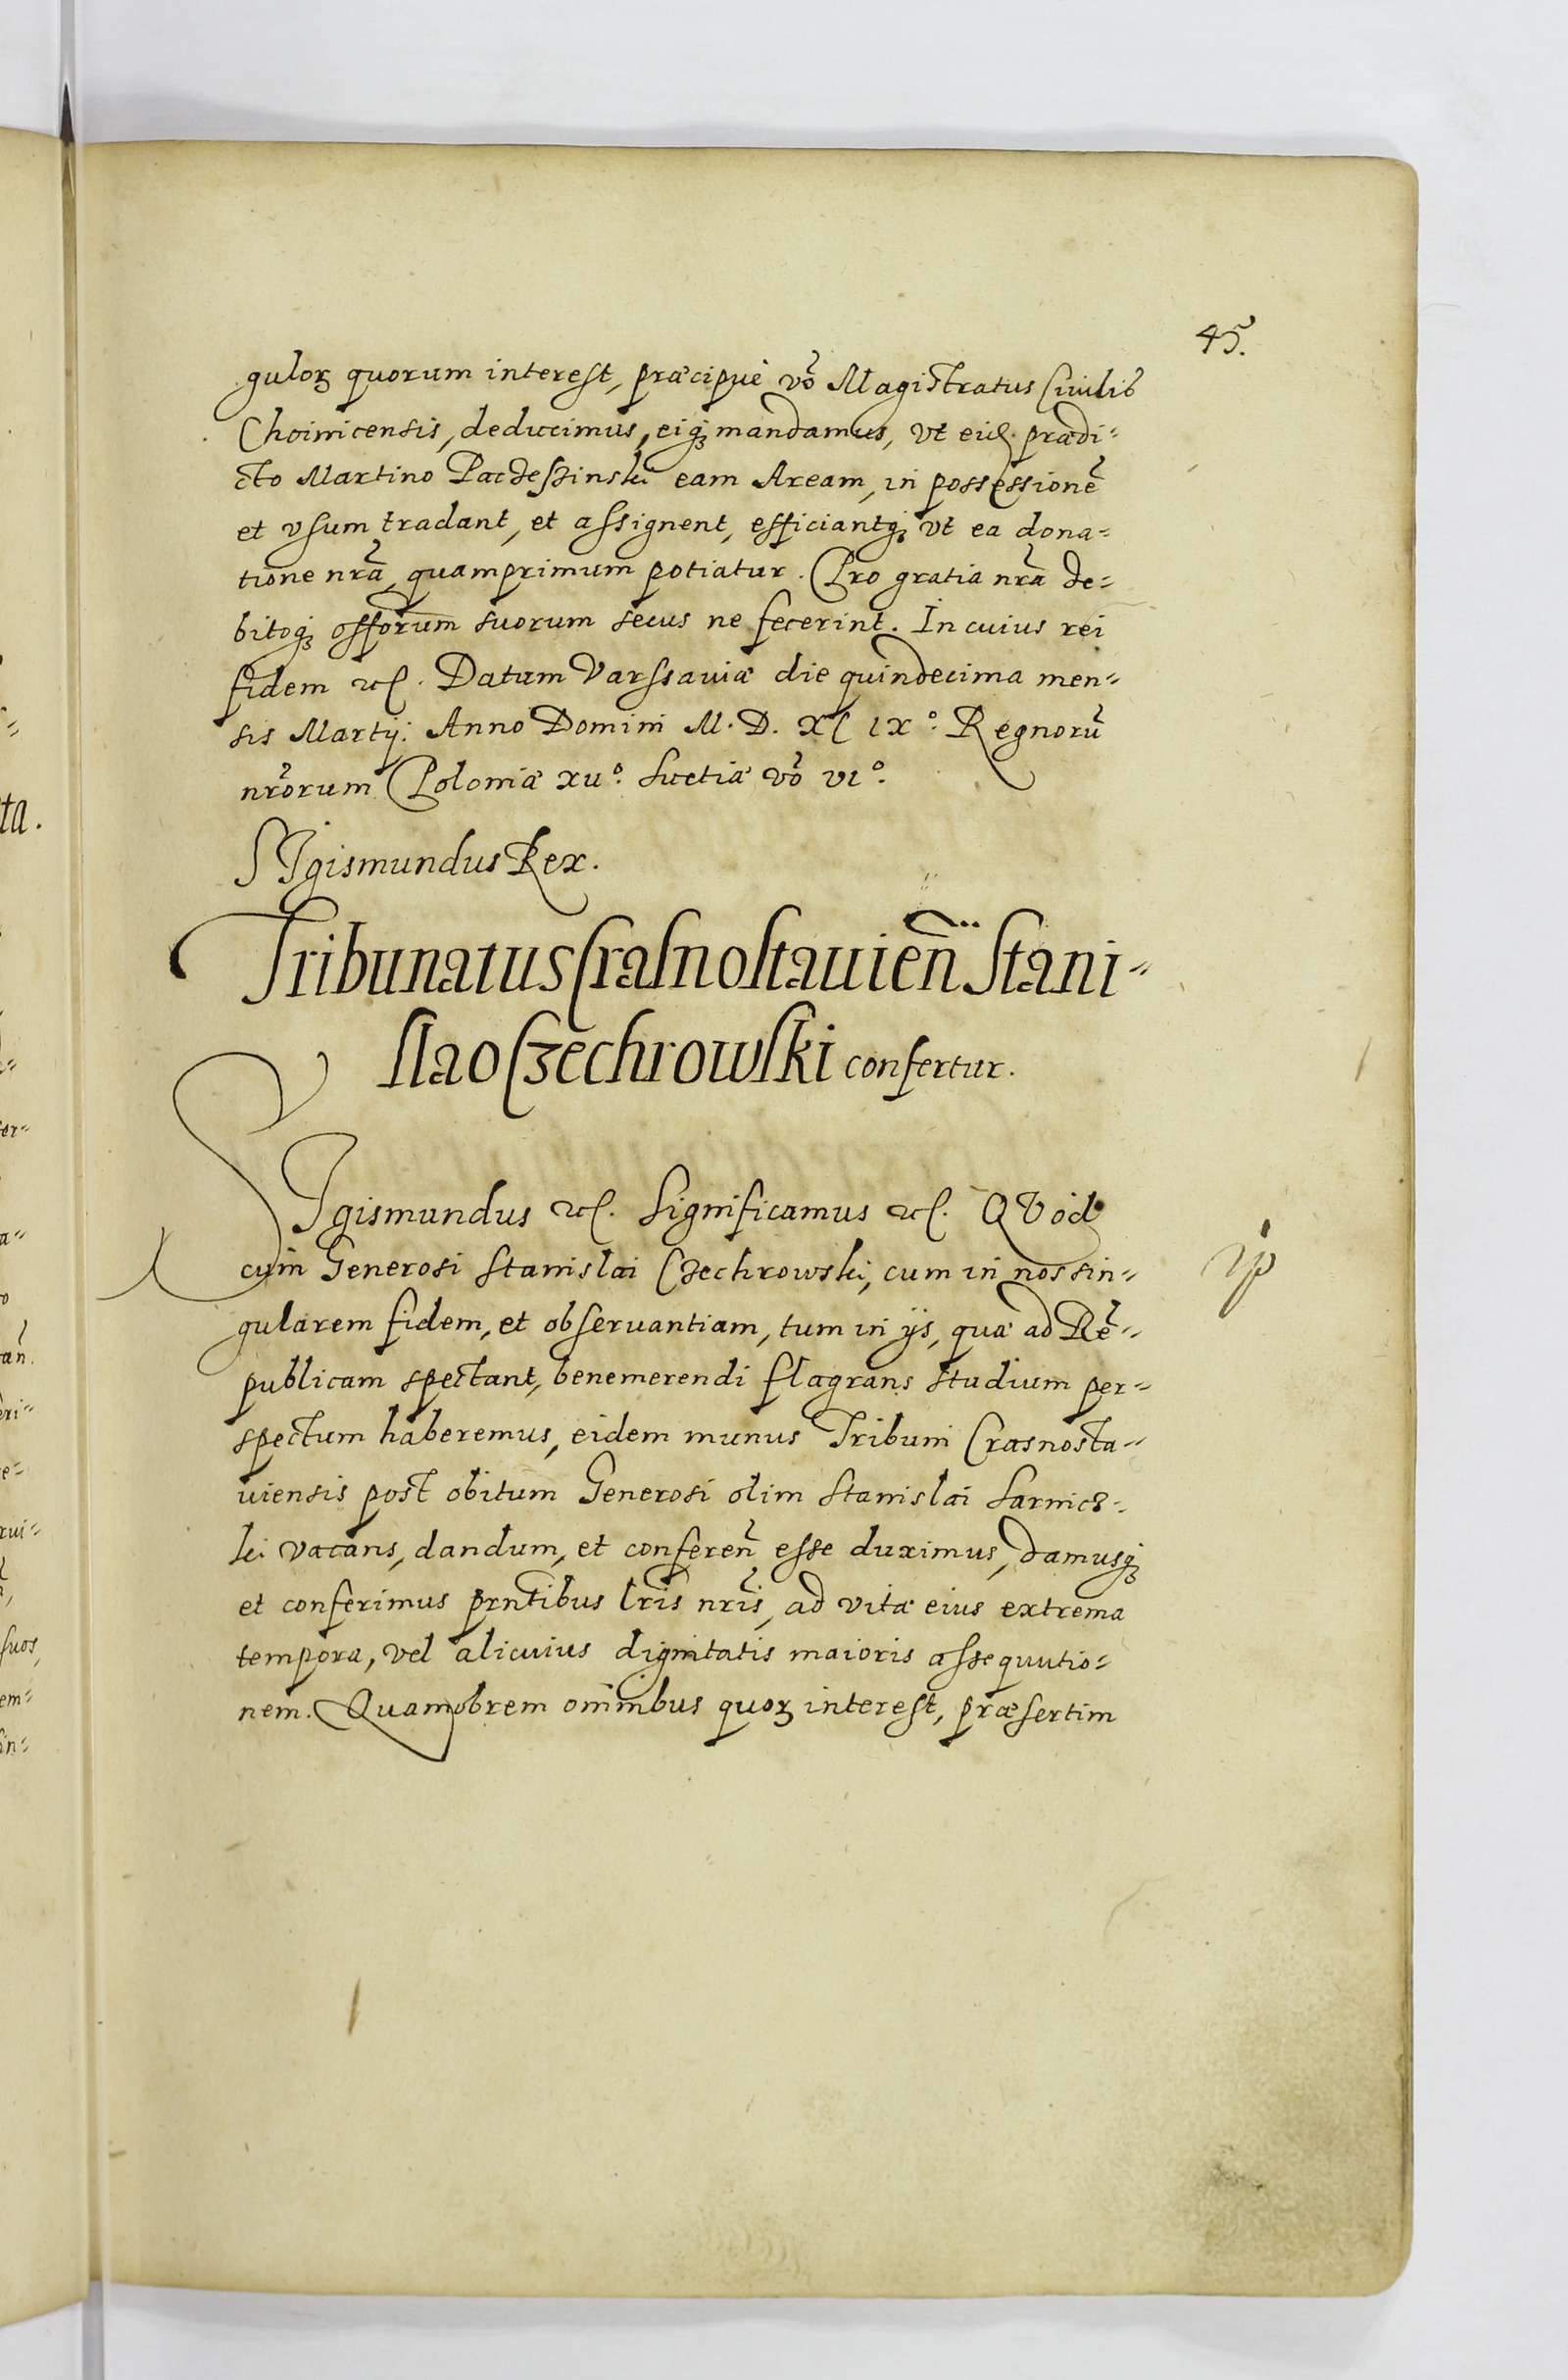 45.
gulorꝫ quorum interest, præcipuè vo͂ Magistratus Ciuilis
Choinicensis, deducimus, eiqꝫ mandamus, vt eid. prædi=
cto Martino Paczeszinski eam Aream, in possessione͂
et vsum tradant, et assignent, efficiantqꝫ vt ea dona=
tione nra͂, quamprimum potiatur. Pro gratia nra͂ de=
bitoqꝫ offo͂rum suorum secus ne fecerint. In cuius rei
fidem etc. Datum Varssauiæ die quindecima men=
sis Martij. Anno Domini M. D. XC IX°. Regnoru͂
nro͂rum Poloniæ xii°. Suetiæ vo͂ vi°.
SIgismundus Rex.
Tribunatus Crasnostauien͂ Stani=
slao Czechrowski confertur.
SIgismundus etc. Significamus etc. QVòd
cum Generosi Stanislai Czechrowski, cum in nos sin=
gularem fidem, et obseruantiam, tum in ijs, quæ ad Re͂=
publicam spectant, benemerendi flagrans studium per=
spectum haberemus, eidem munus Tribuni Crasnosta=
uiensis post obitum Generosi olim Stanislai Sarnics=
ki vacans, dandum, et conferen͂ esse duximus, damusqꝫ
et conferimus prn͂tibus lri͂s nri͂s, ad vitæ eius extrema
tempora, vel alicuius dignitatis maioris assequutio=
nem. Quamobrem omnibus quorꝫ interest, præsertim